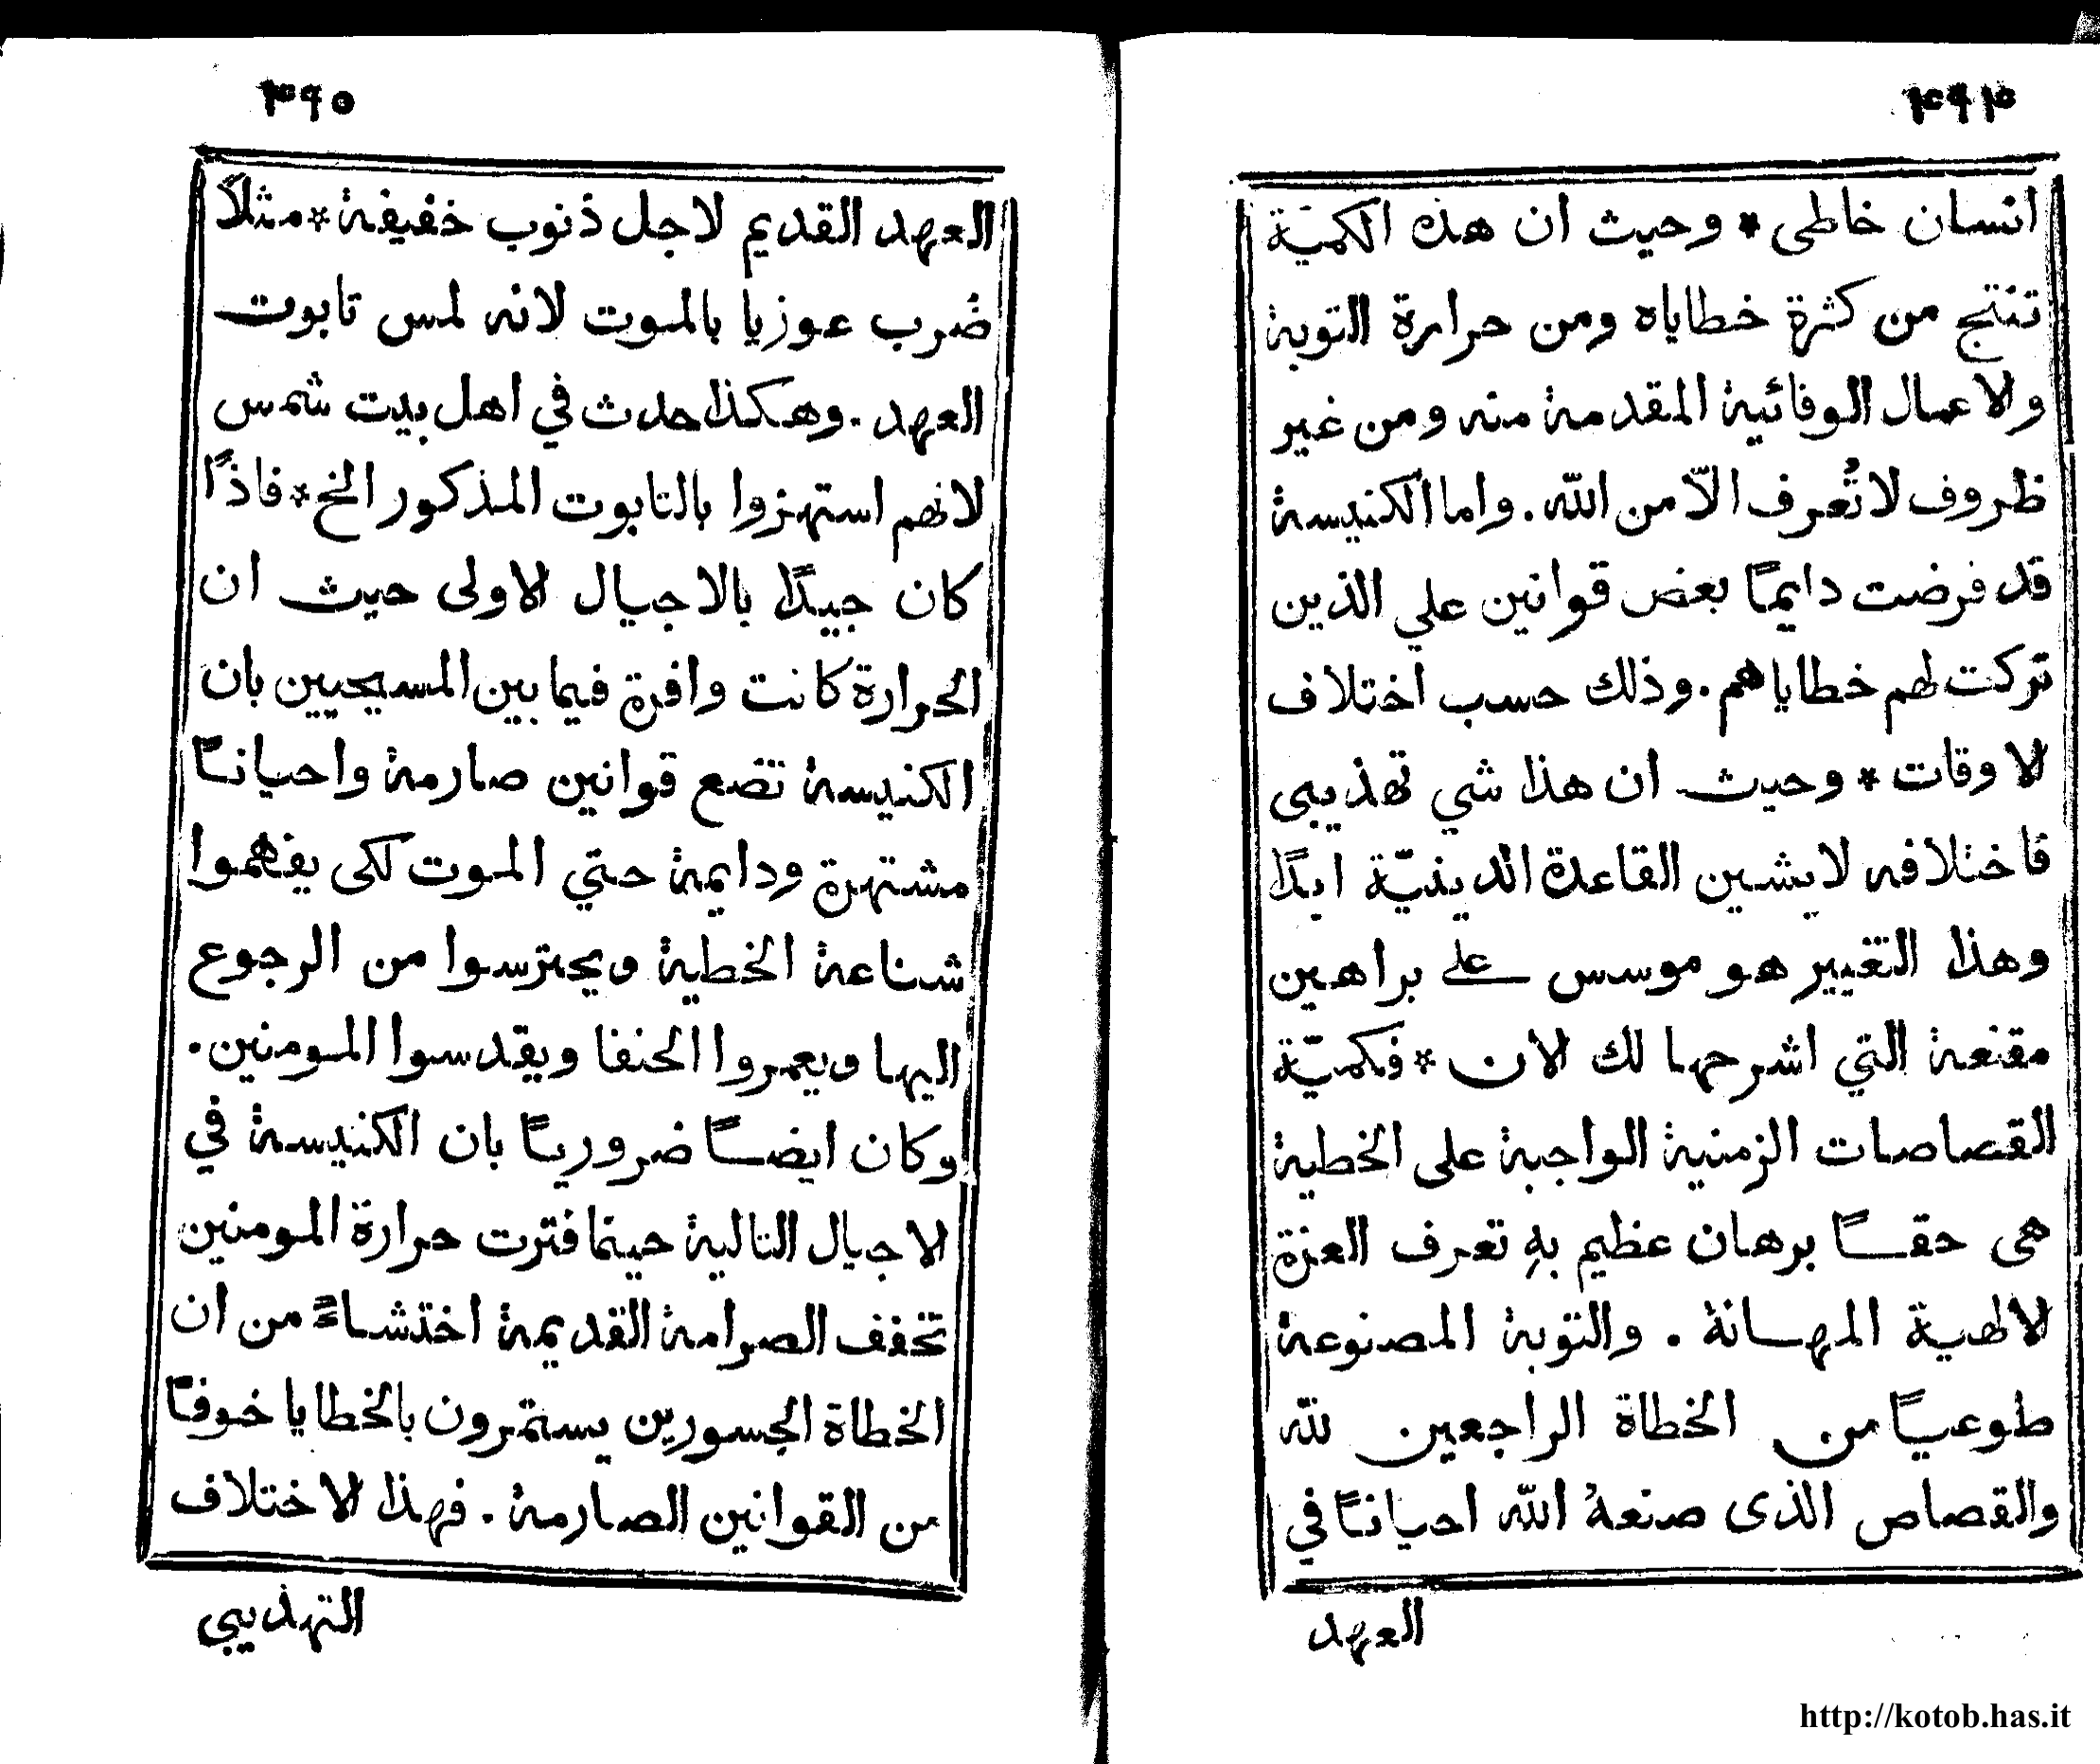 ٣٩٤
انسان خاطى * وحيث ان هذه الكميّة
تنتج من كثرة خطاياه ومن حرارة التوبة
والاعمال الوفائية المقدمة منه ومن غير
ظروف لا تُعرف الّا من اللّه. واما الكنيسة
قد فرضت دايمًا بعض قوانين علي الذين
تركت لهم خطاياهم. وذلك حسب اختلاف
الاوقات * وحيث ان هذا شي تهذيبى
فاختلافه لا يشين القاعدة الدينيّة ابدًا
وهذا التغيير هو موسس على براهين
مقنعة التي اشرحها لك الان * فكميّة
القصاصات الزمنية الواجبة على الخطية
هى حقًا برهان عظيم بهِ تعرف العزة
الالهية المهانة. والتوبة المصنوعة
طوعيًا من الخطاة الراجعين للّه
والقصاص الذى صنعهُ اللّه احيانًا في
العهد
٣٩٥
العهد القديم لاجل ذنوب خفيفة * مثلًا
ضُرب عوزيا بالموت لانه لمس تابوت
العهد. وهكذا حدث في اهل بيت شمس
لانهم استهزوا بالتابوت المذكور الخ * فاذًا
كان جيدًا بالاجيال الاولى حيث ان
الحرارة كانت وافرة فيما بين المسيحيين بان
الكنيسة تضع قوانين صارمة واحيانًا
مشتهرة ودايمة حتي الموت لكى يفهموا
شناعة الخطية ويحترسوا من الرجوع
اليها ويعمروا الحنفا ويقدسوا المومنين.
وكان ايضًا ضروريًا بان الكنيسة في
الاجيال التالية حينما فترت حرارة المومنين
تخفف الصرامة القديمة اختشاءً من ان
الخطاة الجسورين يستمرون بالخطايا خوفًا
من القوانين الصارمة. فهذا الاختلاف
التهذيبي
http://kotob.has.it